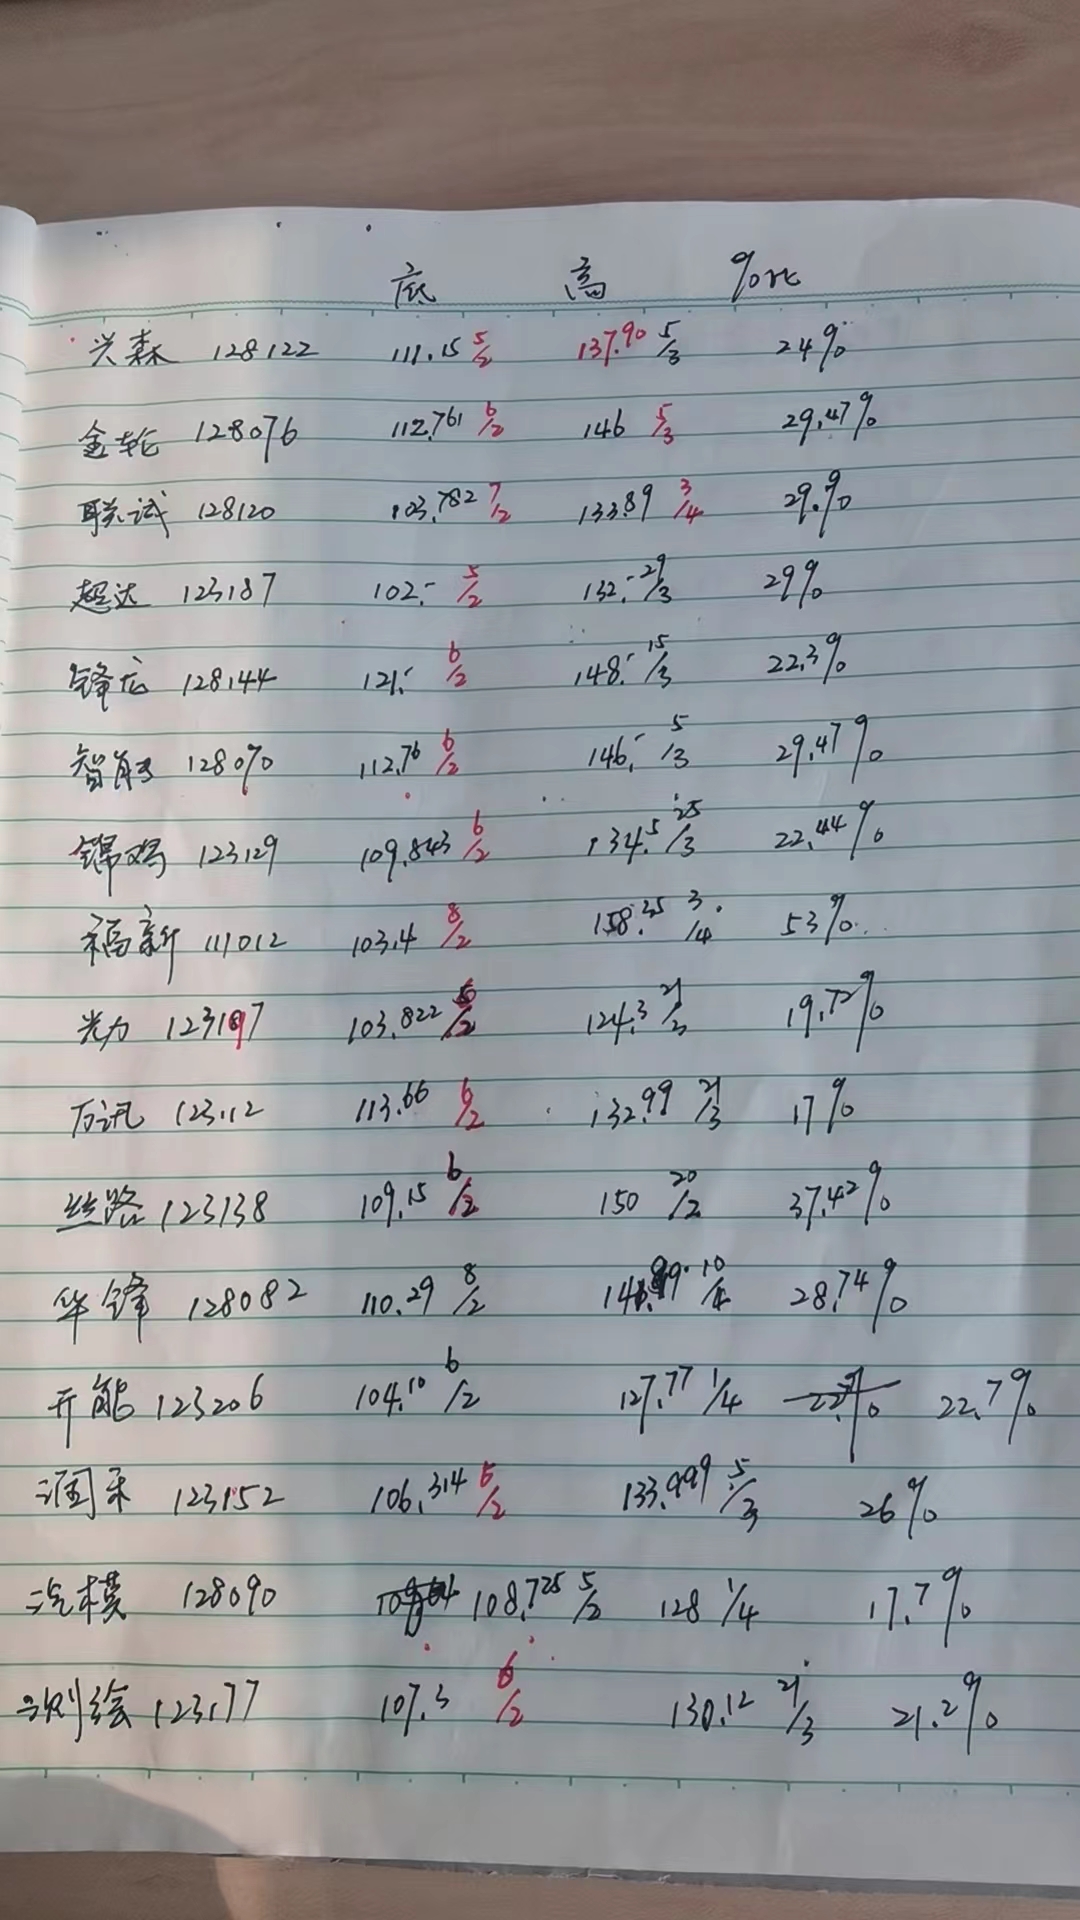 底 高 %比
兴森 128122 111.15 5/2 137.90 5/3 24%
金轮 128076 112.761 6/2 146 5/3 29.47%
联诚 128120 103.782 7/2 133.89 3/4 29.%
超达 123187 102.- 5/2 132.- 29/3 29%
锋龙 128144 121.- 6/2 148.- 15/3 22.3%
智能 128070 112.76 6/2 146.- 5/3 29.47%
锦鸡 123129 109.843 6/2 134.5 25/3 22.44%
福新 111012 103.4 8/2 158.35 3/4 53%
光力 123197 103.822 /2 124.3 21/3 19.72%
万讯 123112 113.66 6/2 132.99 21/3 17%
丝路 123138 109.15 6/2 150 20/2 37.42%
华锋 128082 110.29 8/2 141.99 10/4 28.74%
开能 123206 104.10 6/2 127.77 1/4 22% 22.7%
润禾 123152 106.314 5/2 133.999 5/3 26%
汽模 128090 108.725 5/2 128 1/4 17.7%
测绘 123177 107.3 6/2 130.12 21/3 21.2%